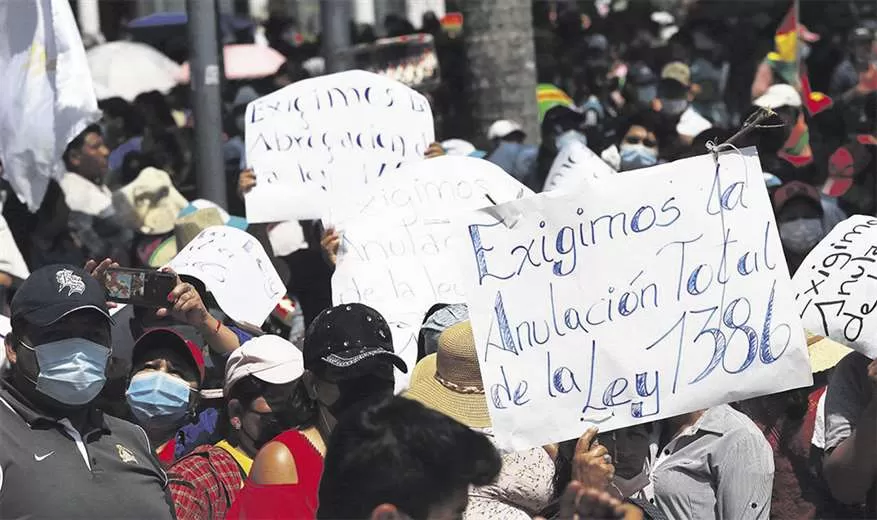 Exigimos la
Abrogación d
la ley 1
Exigimos la
Anula
de la le
Exigimos la
Anulación Total
de la Ley 1386
Exigim
Anula
de l